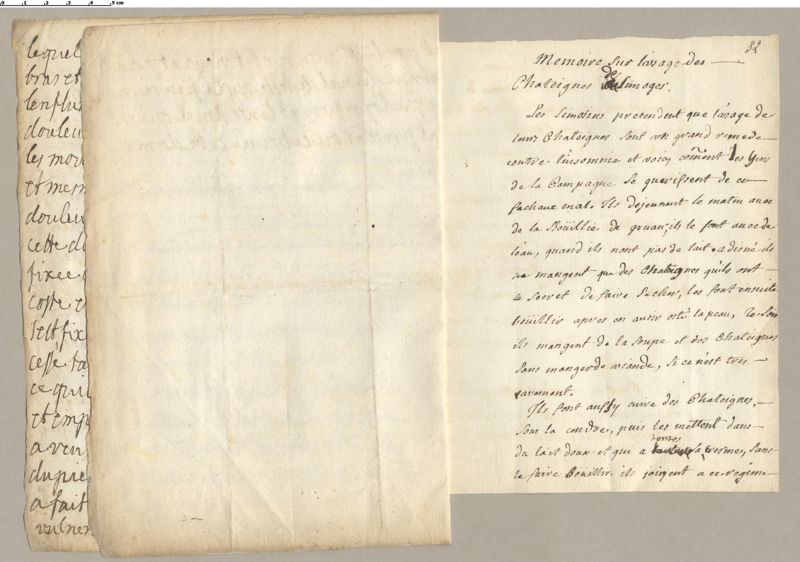 lequel
bras et
lenflu
douleu
les mou
et mesm
douleu
cette do
fixee
coste e
test fix
cesse ta
ce qui
et emp
a ven
du pie
a fait
vulner
32
Memoire sur l'usage des
Chateignes de limages.
Les Limosins pretendent que l'usage de
leurs Chateignes sont un grand remede
contre l'insomnie et voicy coment les Gens
de la Campagne se guerissent de ce
facheux mal. Ils dejeunent le matin avec
de la Boüillie de gruau, ils le font avec de
l'eau, quand ils n'ont pas de lait. a disné ils
ne mangent que des Chateignes qu'ils ont
le secret de faire secher, les font ensuite
boüillir apres en avoir osté la peau, le soir
ils mangent de la soupe et des Chateignes
sans manger de viande, si ce n'est tres
rarement.
Ils font aussy cuire des Chateignes,
sous la cendre, puis les mettent dans
du lait doux et qui a toutes sa cresme, sans
le faire Boüillir. ils joignent a ce regime